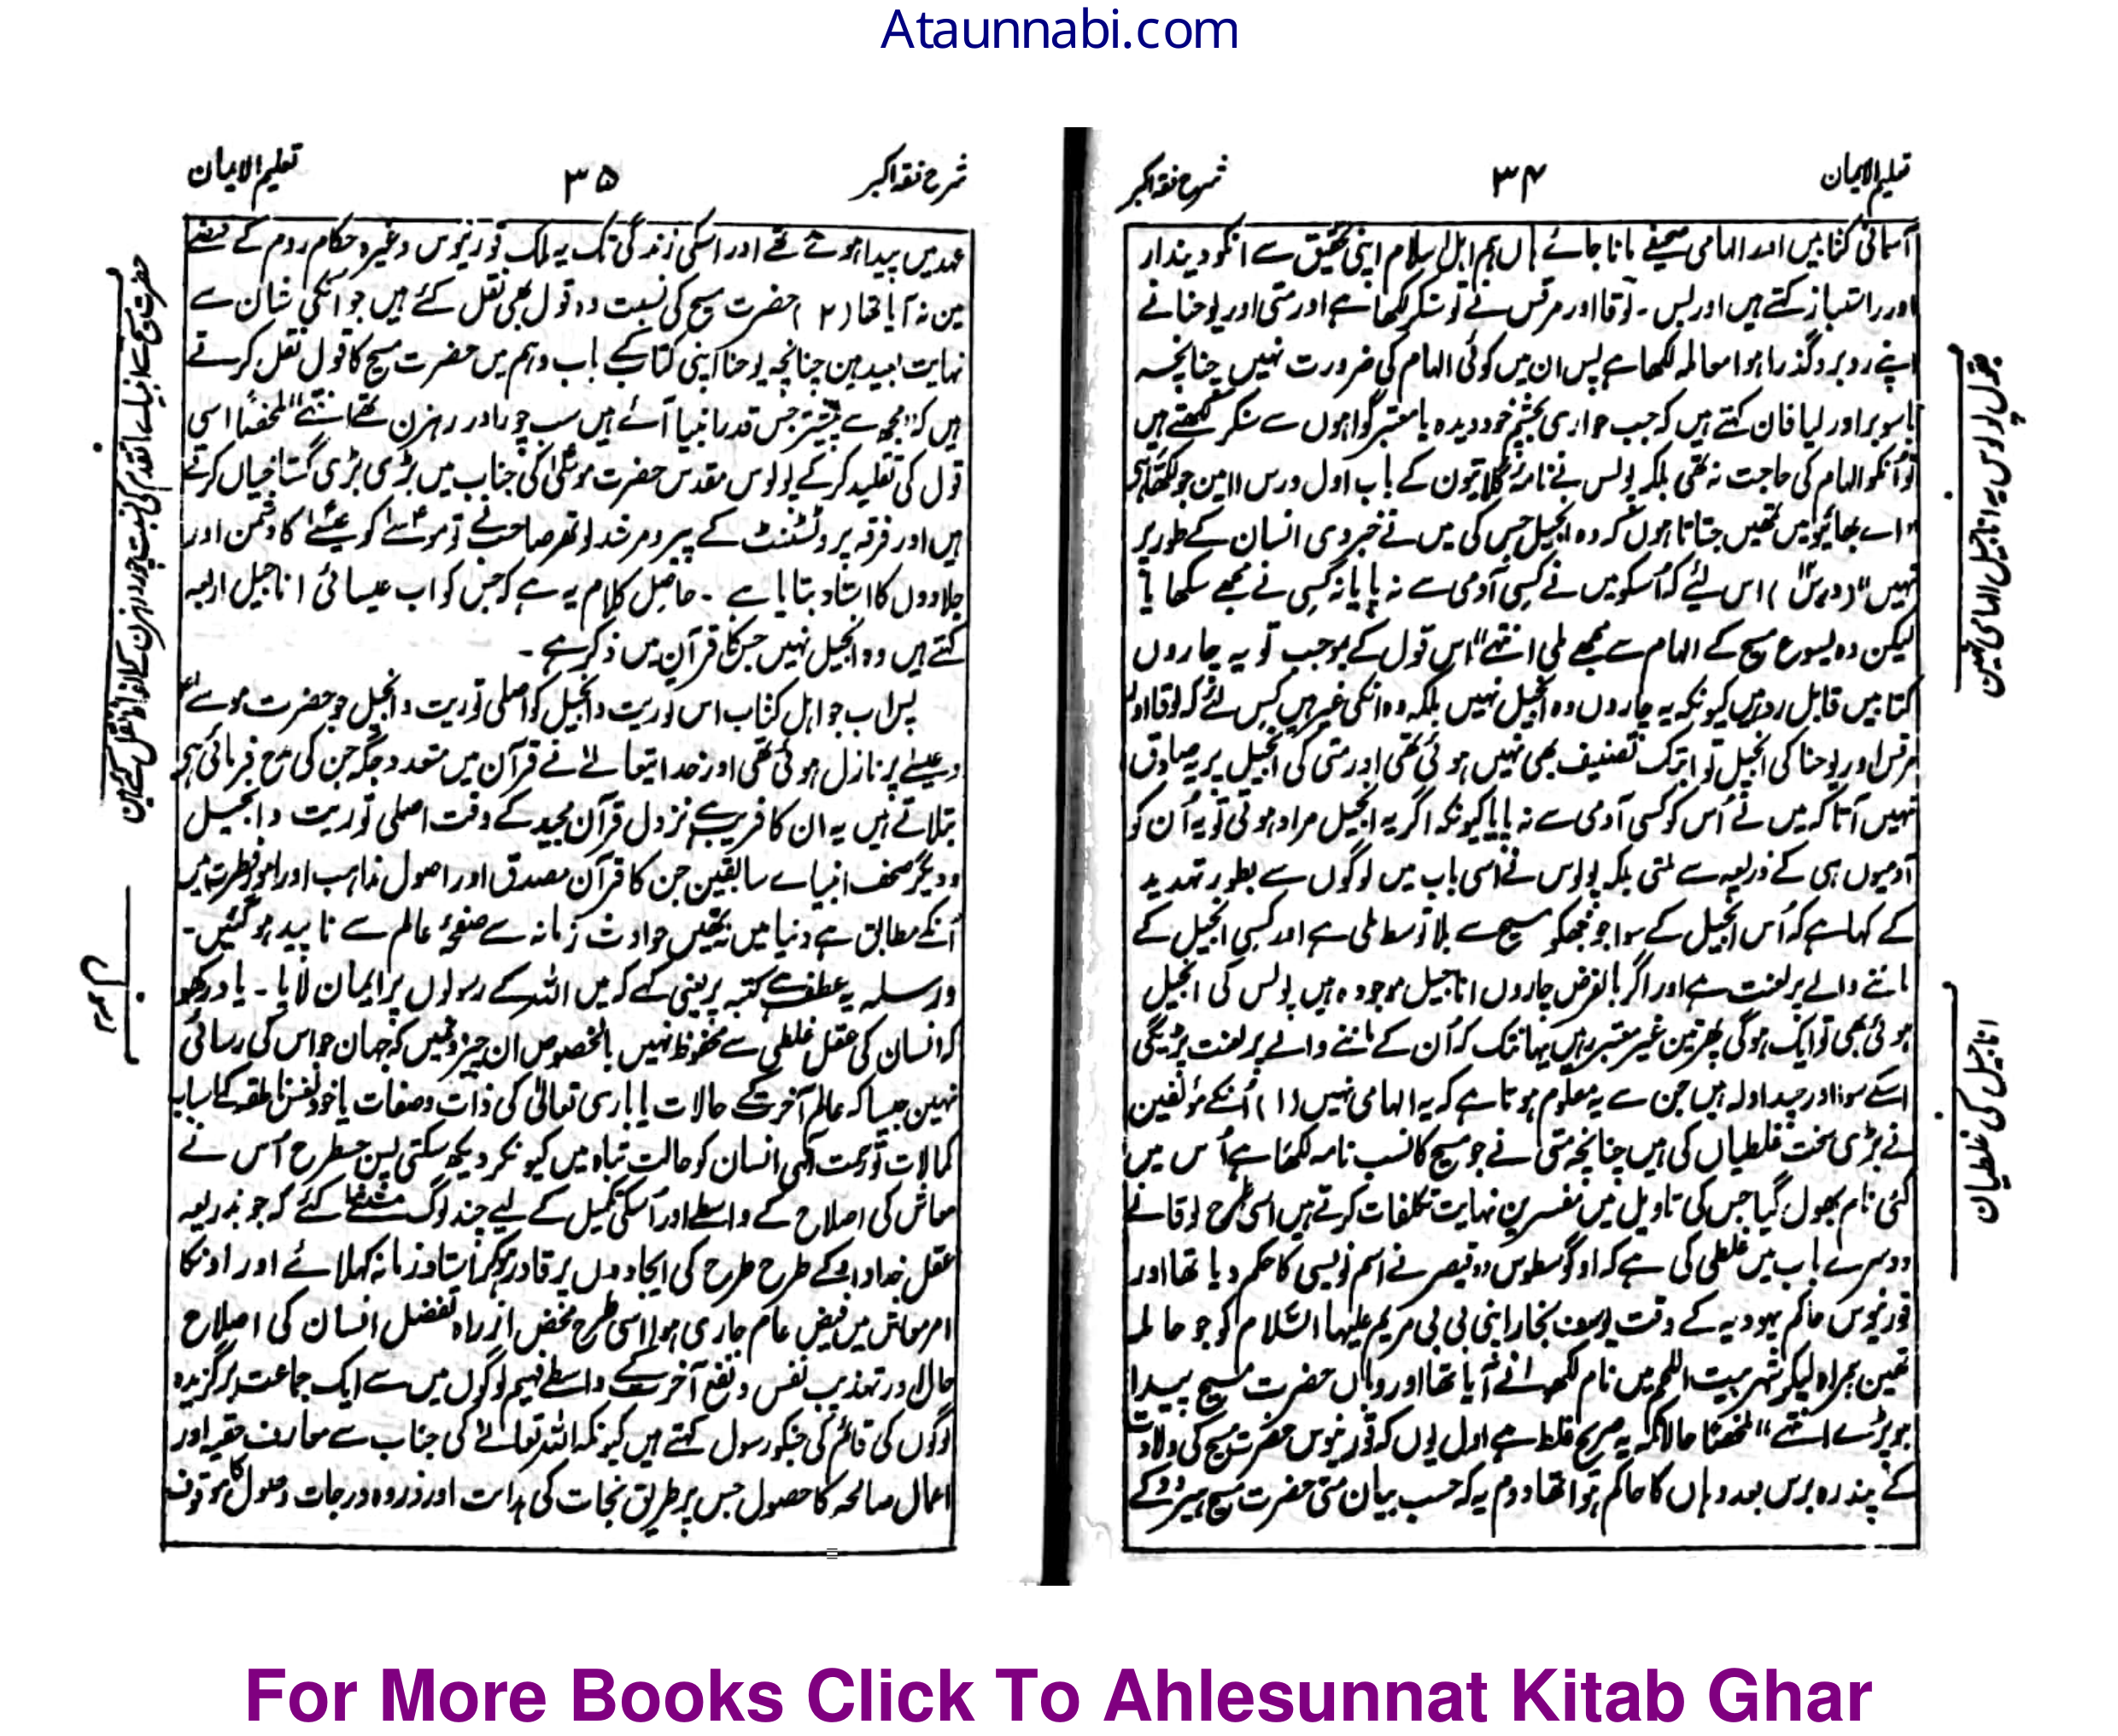 Ataunnabi.com
تعلیم الایمان ۳۴ شرح فقہ اکبر
آسمانی کتابیں اور الہامی صحیفے مانا جائے ہاں ہم اہل اسلام اپنی تحقیق سے انکو دیندار
اور راستباز کہتے ہیں اور بس ۔ لوقا اور مرقس نے تو سنکر لکھا ہے اور متی اور یوحنا نے
اپنے روبرو گذرا ہوا معاملہ لکھا ہے پس ان میں کوئی الہام کی ضرورت نہیں چنانچہ
باسوبر اور لیافان کہتے ہیں کہ جب حواری بچشم خود دیدہ یا معتبر گواہوں سے سنکر لکھتے ہیں
تو اُنکو الہام کی حاجت نہ تھی بلکہ پولس نے نامۂ گلاتیون کے باب اول درس ۱۱ مین جو لکھتا ہے
"اے بھائیو میں تمھیں جتاتا ہوں کہ وہ انجیل جس کی میں نے خبر دی انسان کے طور پر
نہیں" (درس ۱۲) اس لیئے کہ اُسکو میں نے کسی آدمی سے نہ پایا نہ کسی نے مجھے سکھایا
لیکن وہ یسوع مسیح کے الہام سے مجھے ملی انتہے" اس قول کے بموجب تو یہ چاروں
کتابیں قابل رد ہیں کیونکہ یہ چاروں وہ انجیل نہیں بلکہ وہ انکی غیر ہیں کس لئے کہ لوقا اور
مرقس اور یوحنا کی انجیل تو ابتک تصنیف بھی نہیں ہوئی تھی اور متی کی انجیل پر یہ صادق
نہیں آتا کہ میں نے اُس کو کسی آدمی سے نہ پایا کیونکہ اگر یہ انجیل مراد ہوتی تو یہ اُن کو
آدمیوں ہی کے ذریعہ سے ملتی بلکہ پولوس نے اسی باب میں لوگوں سے بطور تہدید
کے کہا ہے کہ اُس انجیل کے سوا جو مجھکو مسیح سے بلا توسط ملی ہے اور کسی انجیل کے
ماننے والے پر لعنت ہے اور اگر بالفرض چاروں اناجیل موجودہ ہیں پولس کی انجیل
ہوئی بھی تو ایک ہوگی پھر تین غیر معتبر رہیں یہانتک کہ اُن کے ماننے والے پر لعنت پڑیگی
اسکے سوا اور چند اولہ ہیں جن سے یہ معلوم ہوتا ہے کہ یہ الہامی نہیں (۱) اُنکے مؤلفین
نے بڑی سخت غلطیاں کی ہیں چنانچہ متی نے جو مسیح کا نسب نامہ لکھا ہے اُس میں
کئی نام بھول گیا جس کی تاویل میں مفسرین نہایت تکلفات کرتے ہیں اسی طرح لوقا نے
دوسرے باب میں غلطی کی ہے کہ اوگوسطوس قیصر نے اسم نویسی کا حکم دیا تھا اور
قورنیوس حاکم یہودیہ کے وقت یوسف نجار اپنی بی بی مریم علیہا السّلام کو جو حاملہ
تھین ہمراہ لیکر شہر بیت اللحم میں نام لکھانے آیا تھا اور وہاں حضرت مسیح پیدا
ہو پڑے انتہے" ملخصًا حالانکہ یہ صریح غلط ہے اول یوں کہ قورنیوس حضرت مسیح کی ولادت
کے پندرہ برس بعد وہاں کا حاکم ہوا تھا دوم یہ کہ حسب بیان متی حضرت مسیح ہیرود کے
پولوس یہ اناجیل الہامی نہین
اناجیل کی غلطیان
شرح فقہ اکبر ۳۵ تعلیم الایمان
عہد میں پیدا ہوئے تھے اور اسکی زندگی تک یہ ملک قورنیوس وغیرہ حکام روم کے قبضے
مین نہ آیا تھا (۲) حضرت مسیح کی نسبت وہ قول بھی نقل کئے ہیں جو انکی شان سے
نہایت بعید ہین چنانچہ یوحنا اپنی کتاب کے باب دہم میں حضرت مسیح کا قول نقل کرتے
ہیں کہ "مجھ سے پیشتر جس قدر انبیا آئے ہیں سب چور اور رہزن تھے انتہے" ملخصًا اسی
قول کی تقلید کر کے پولوس مقدس حضرت موسیٰ کی جناب میں بڑی بڑی گستاخیاں کرتے
ہیں اور فرقہ پروٹسٹنٹ کے پیر و مرشد لوتھر صاحب نے تو موسے کو عیسے کا دشمن اور
جلادوں کا استاد بتایا ہے ۔ حاصل کلام یہ ہے کہ جس کو اب عیسائی اناجیل اربعہ
کہتے ہیں وہ انجیل نہیں جس کا قرآن میں ذکر ہے ۔
پس اب جو اہل کتاب اس توریت و انجیل کو اصلی توریت و انجیل جو حضرت موسے
و عیسے پر نازل ہوئی تھی اور خدا تعالےٰ نے قرآن میں متعدد جگہ جن کی مدح فرمائی ہے
بتلاتے ہیں یہ ان کا فریب ہے نزول قرآن مجید کے وقت اصلی توریت و انجیل
و دیگر صحف انبیاے سابقین جن کا قرآن مصدق اور اصول مذاہب اور امور فطرت میں
اُنکے مطابق ہے دنیا میں نہ تھیں حوادث زمانہ سے صفحۂ عالم سے ناپید ہو گئیں۔
ورسلہ یہ عطف ہے کتبہ پر یعنی کہے کہ میں اللہ کے رسولوں پر ایمان لایا ۔ یاد رکھو
کہ انسان کی عقل غلطی سے محفوظ نہیں بالخصوص ان چیزونمیں کہ جہان جو اس کی رسائی
نہین جیسا کہ عالم آخرت کے حالات یا باری تعالیٰ کی ذات و صفات یا خود نفس ناطقہ کے اسباب
کمالات تو رحمت الٰہی انسان کو حالت تباہ میں کیونکر دیکھ سکتی پس جسطرح اُس نے
معاش کی اصلاح کے واسطے اور اسکی تکمیل کے لیے چند لوگ کئے کہ جو بذریعہ
عقل خداداد کے طرح طرح کی ایجادوں پر قادر ہوکر استاد زمانہ کہلائے اور اونکا
امر معاش میں فیض عام جاری ہوا اسی طرح محض از راہ تفضل انسان کی اصلاح
حال اور تہذیب نفس و نفع آخرت کے واسطے فہیم لوگوں میں سے ایک جماعت برگزیدہ
لوگوں کی قائم کی جنکو رسول کہتے ہیں کیونکہ اللہ تعالےٰ کی جناب سے معارف حقہ اور
اعمال صالحہ کا حصول جس پر طریق نجات کی ہدایت اور ذروہ درجات وصول کا موقوف
For More Books Click To Ahlesunnat Kitab Ghar